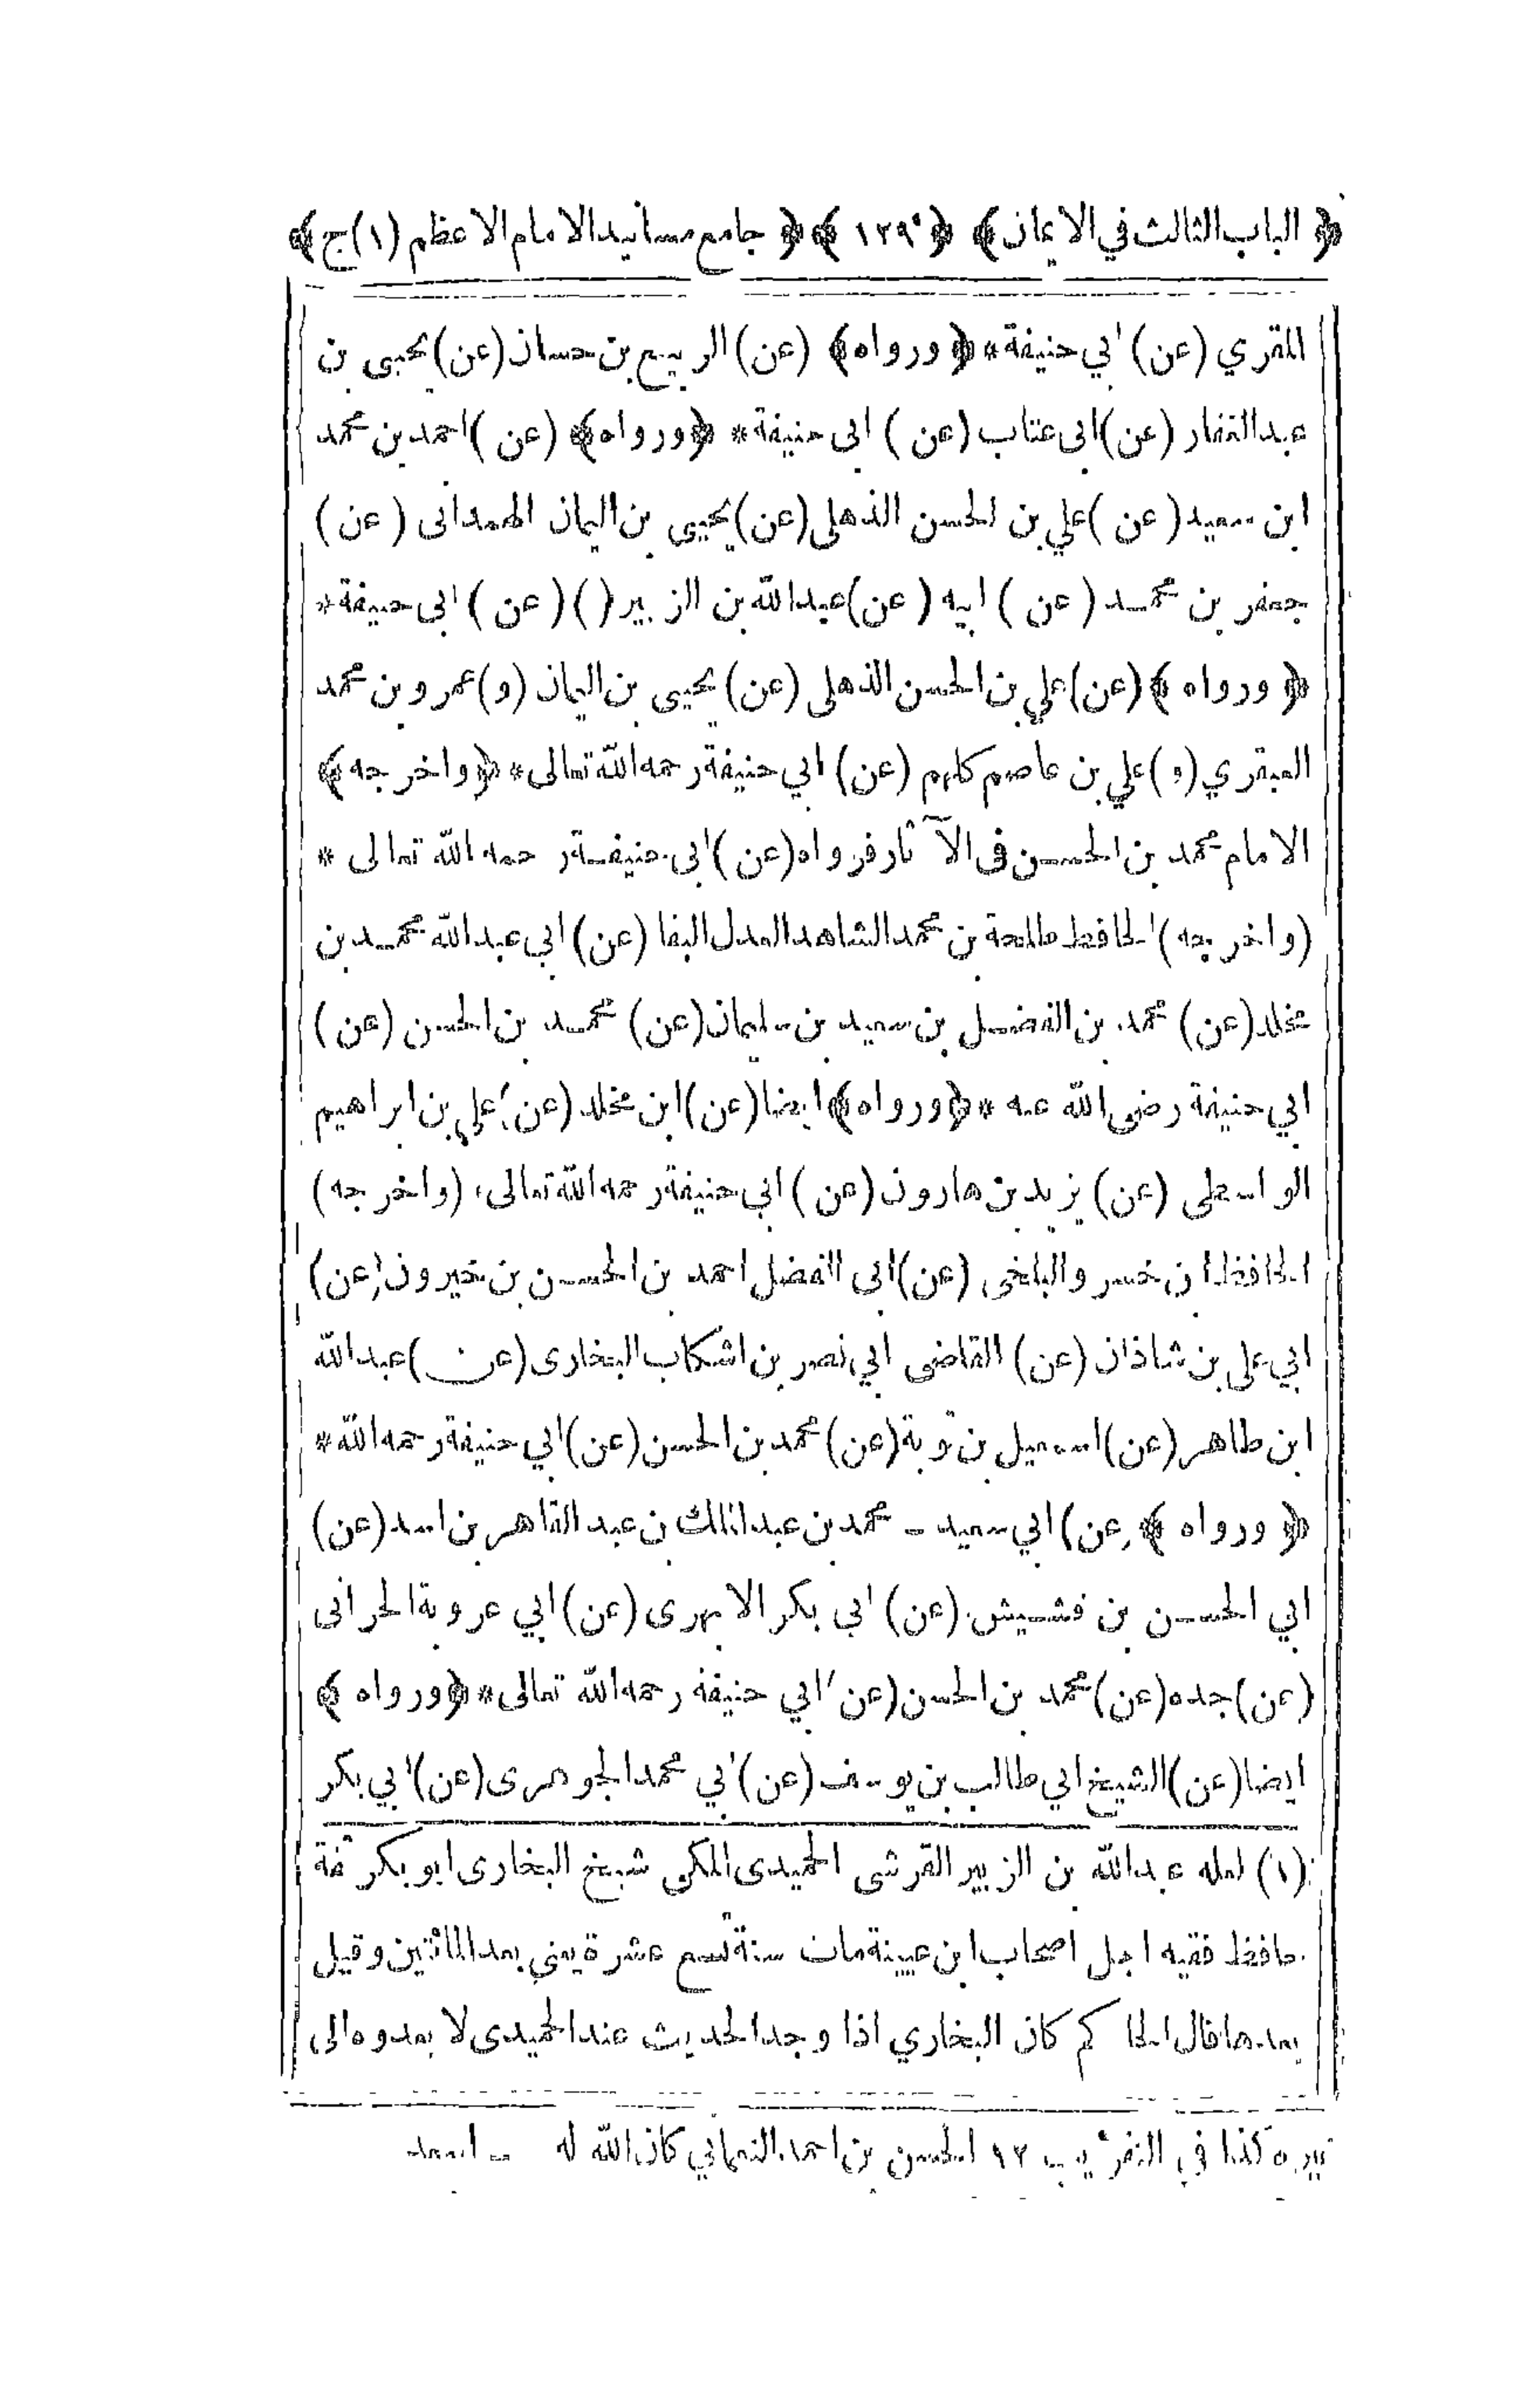 ﴿ الباب الثالث في الايمان ﴾ ﴿ ١٢٩ ﴾ ﴿ جامع مسانيد الامام الاعظم (١) ج ﴾
المقري (عن) ابي حنيفة * ﴿ ورواه ﴾ (عن) الربيع بن حسان (عن) يحيى بن
عبد الغفار (عن) ابى عتاب (عن) ابى حنيفة * ﴿ ورواه ﴾ (عن) احمد بن محمد
ابن سعيد (عن) علي بن الحسن الذهلى (عن) يحيى بن اليمان الهمدانى (عن)
جعفر بن محمد (عن) ابيه (عن) عبد الله بن الزبير () (عن) ابى حنيفة *
﴿ ورواه ﴾ (عن) علي بن الحسن الذهلى (عن) يحيى بن اليمان (و) عمرو بن محمد
العبقري (و) علي بن عاصم كلهم (عن) ابي حنيفة رحمه الله تعالى * ﴿ واخرجه ﴾
الامام محمد بن الحسن فى الآثار فرواه (عن) ابى حنيفة رحمه الله تعالى *
(واخرجه) الحافظ طلحة بن محمد الشاهد العدل البفا (عن) ابي عبد الله محمد بن
مخلد (عن) محمد بن الفضل بن سعيد بن سليمان (عن) محمد بن الحسن (عن)
ابي حنيفة رضى الله عنه * ﴿ ورواه ﴾ ايضا (عن) ابن مخلد (عن) علي بن ابراهيم
الواسطى (عن) يزيد بن هارون (عن) ابي حنيفة رحمه الله تعالى، (واخرجه)
الحافظ ابن خسرو البلخى (عن) ابى الفضل احمد بن الحسن بن خيرون (عن)
ابي على بن شاذان (عن) القاضى ابي نصر بن اشكاب البخارى (عن) عبد الله
ابن طاهر (عن) اسمعيل بن توبة (عن) محمد بن الحسن (عن) ابي حنيفة رحمه الله *
﴿ ورواه ﴾ (عن) ابي سعيد محمد بن عبد الملك بن عبد القاهر بن اسد (عن)
ابي الحسن بن قشيش (عن) ابي بكر الابهرى (عن) ابي عروبة الحرانى
(عن) جده (عن) محمد بن الحسن (عن) ابي حنيفة رحمه الله تعالى * ﴿ ورواه ﴾
ايضا (عن) الشيخ ابي طالب بن يوسف (عن) ابي محمد الجوهرى (عن) ابي بكر
(١) لعله عبد الله بن الزبير القرشى الحميدى المكى شيخ البخارى ابو بكر ثقة
حافظ فقيه اجل اصحاب ابن عيينة مات سنة تسع عشرة يعني بعد المائتين وقيل
بعدها قال الحاكم كان البخاري اذا وجد الحديث عند الحميدى لا يعدوه الى
غيره كذا في التقريب ١٢ الحسن بن احمد النعماني كان الله له